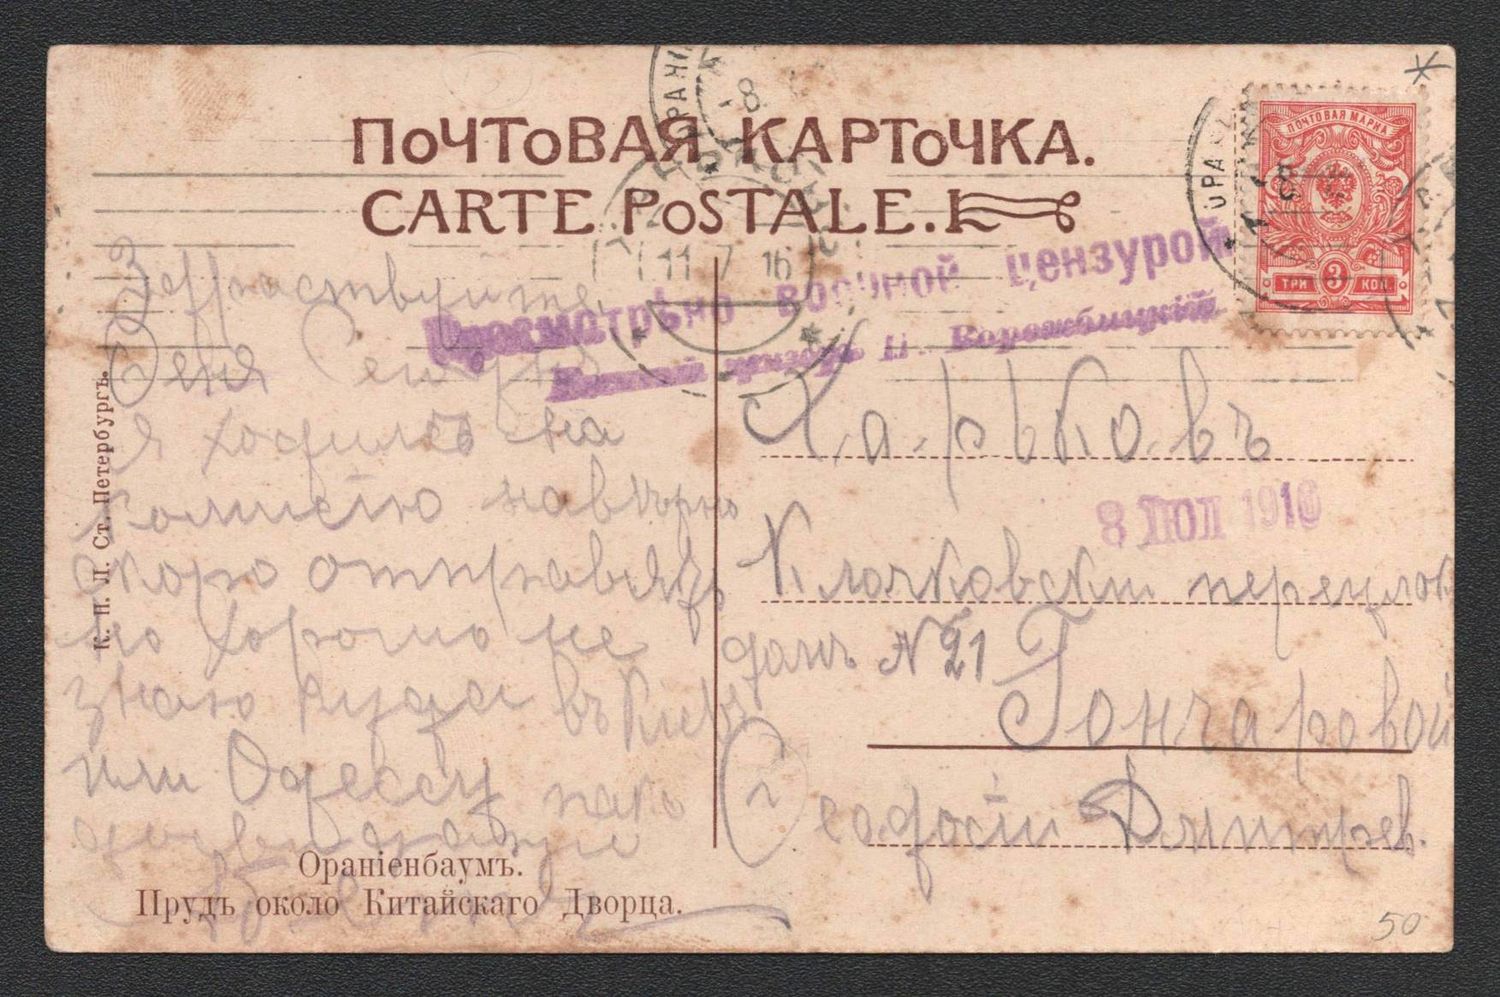 ПОЧТОВАЯ КАРТОЧКА.
CARTE POSTALE.
ПОЧТОВАЯ МАРКА
ТРИ 3 КОП
11 7 16
Просмотрѣно военной цензурой
Военный цензоръ
8 ІЮЛ 1916
К. И. Л. Ст. Петербургъ.
Здраствуйте
я ходилъ на
комисію навѣрно
скоро отправятъ
но хорошо не
знаю куда въ Кіевъ
или Одессу пока
досвиданья
Харьковъ
Клочковскій переулок
домъ № 21
Гончаровой
Феодосіи Дмитрев.
Ораніенбаумъ.
Прудъ около Китайскаго Дворца.
50